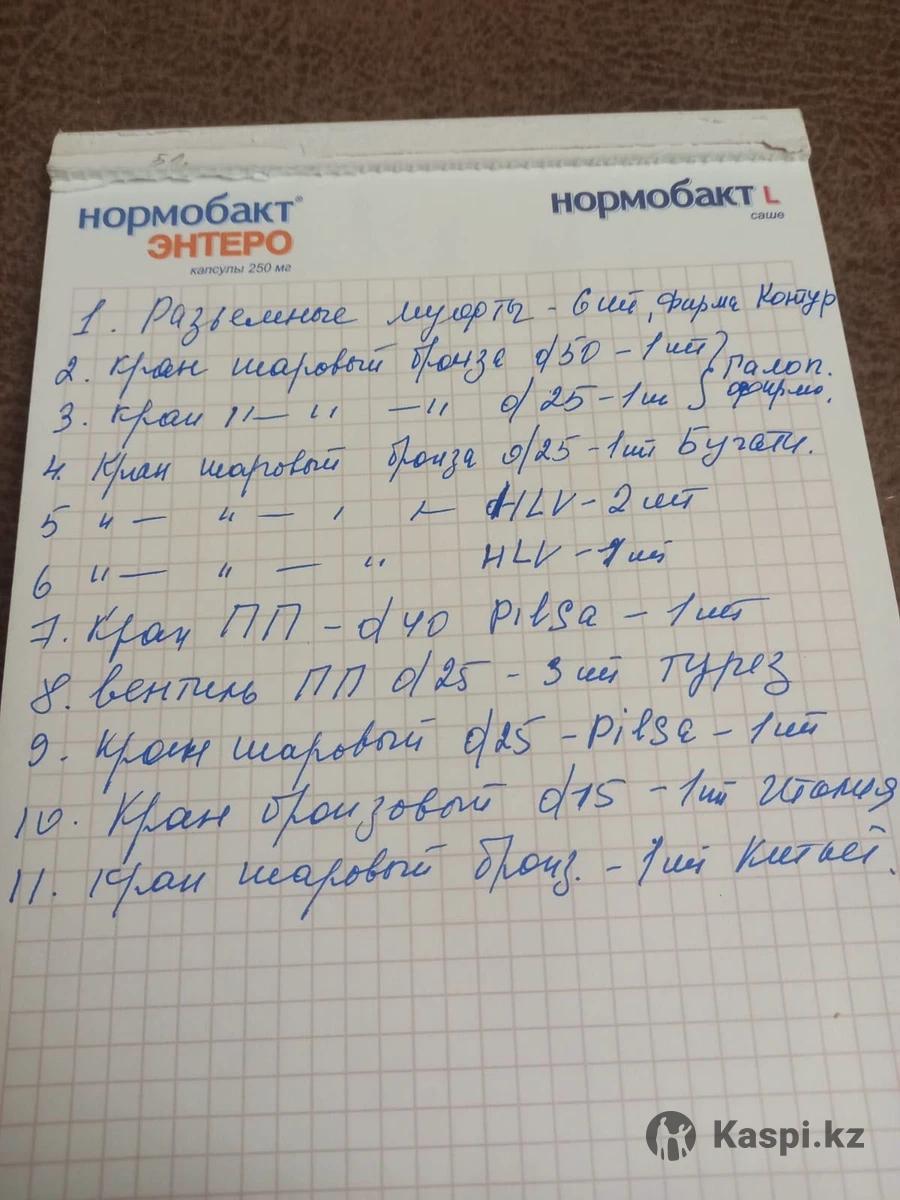 51.
нормобакт®
ЭНТЕРО
капсулы 250 мг
нормобакт L
саше
1. Разъемные муфты - 6 шт, фирма Контур
2. Кран шаровый бронза d50 - 1 шт
3. Кран "— " —" d 25 - 1 ш
} Галоп. фирмо.
4. Кран шаровый бронза d25 - 1 шт Бугати.
5 "— "— ' '— HLV - 2 шт
6 "— " — " HLV - 1 шт
7. Кран ПП - d40 Pilsa - 1 шт
8. вентиль ПП d25 - 3 шт турез
9. Кран шаровый d25 - Pilsa - 1 шт
10. Кран бронзовый d15 - 1 шт Италия
11. Кран шаровый бронз. - 1 шт Китай.
Kaspi.kz